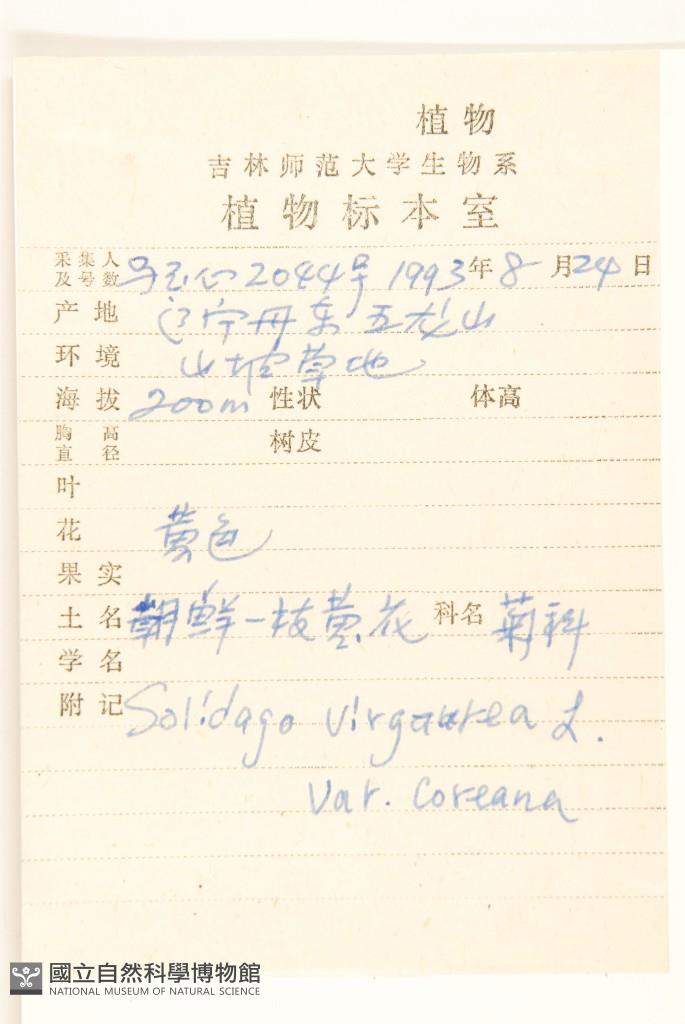 植物
吉林师范大学生物系
植物标本室
采集人及号数 2044号 1993年8月24日
产地 辽宁丹东五龙山
环境 山坡草地
海拔 200m 性状 体高
胸高直径 树皮
叶
花 黄色
果实
土名 朝鲜一枝黄花 科名 菊科
学名
附记 Solidago virgaurea L.
Var. Coreana
國立自然科學博物館
NATIONAL MUSEUM OF NATURAL SCIENCE